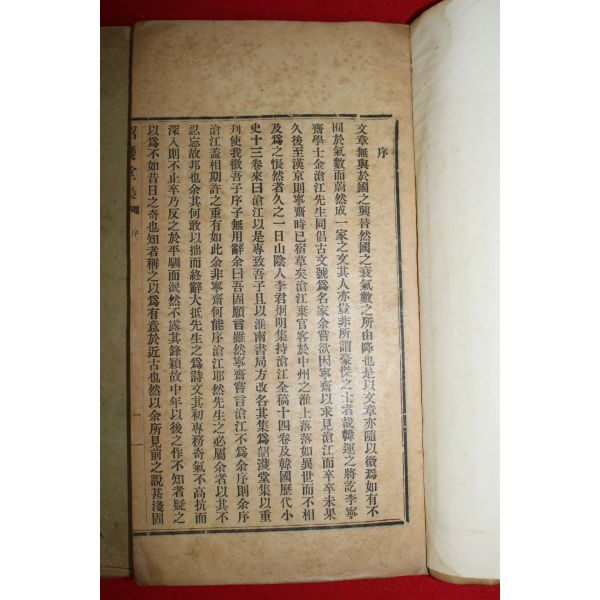 序
文章無與於國之興替然國之衰氣數之所由降也是以文章亦隨以微焉如有不
囿於氣數而蔚然成一家之文其人亦豈非所謂豪傑之士者哉韓運之將訖李寧
齋學士金滄江先生同倡古文號爲名家余嘗欲因寧齋以求見滄江而卒卒未果
久後至漢京則寧齋時已宿草矣滄江棄官客於中州之淮上落落如異世而不相
及爲之悵然者久之一日山陰人李君炯明集持滄江全稿十四卷及韓國歷代小
史十三卷來曰滄江以是專致吾子且以淮南書局方改名其集爲韶濩堂集以重
刋使我徵吾子序子無用辭余曰吾固願言雖然寧齋嘗言滄江不爲余序則余序
滄江蓋相期許之重有如此余非寧齋何能序滄江耶然先生之必屬余者以其不
忍忘故邦也余其何敢以拙而終辭大抵先生之爲詩文其初專務奇氣不高抗而
深入則不止卒乃反之於平馴而泯然不露其鋒穎故中年以後之作不知者疑之
以爲不如昔日之奇也知者稱之以爲有意於近古也然以余所見前之說甚淺固
韶濩堂集
序
一